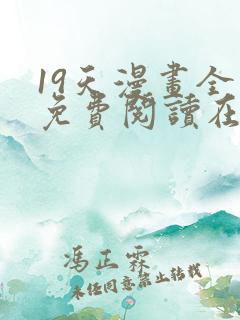 19天漫畫全
免費閱讀在
馮正霖
未經同意禁止轉載